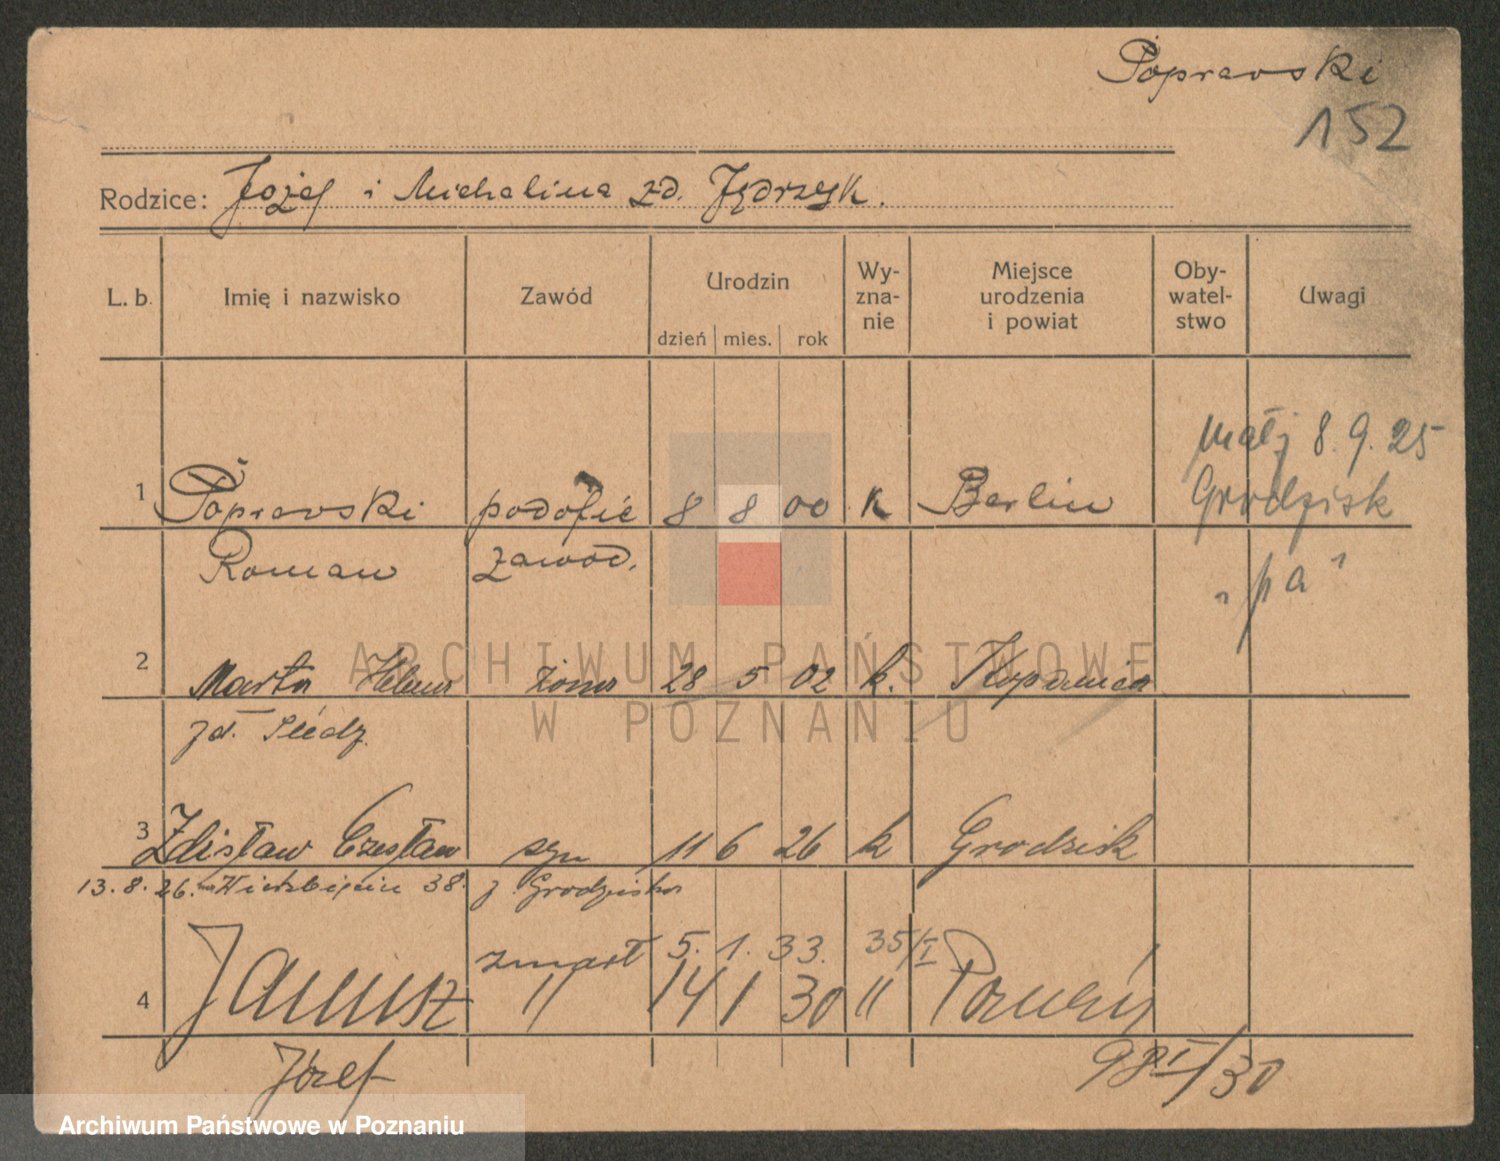 Popravski
152
Rodzice: Józef i Michalina zd. Jędrzejk.
L. b. Imię i nazwisko Zawód Urodzin dzień mies. rok Wy-zna-nie Miejsce urodzenia i powiat Oby-watel-stwo Uwagi
małż 8. 9. 25
1 Popravski podofic 8 8 00 k Berlin Grodzisk
Roman zawod. "pa"
2 Marta Helena żona 28 5 02 k. Kopanica
zd. Śledz.
3 Zdisław Czesław syn 11 6 26 k Grodzisk
13. 8. 26. 38. z Grodziska
zmarł 5. 1. 33. 35/I
4 Janusz " 14 1 30 " Poznań
Józef 98 I/30
ARCHIWUM PAŃSTWOWE
W POZNANIU
Archiwum Państwowe w Poznaniu